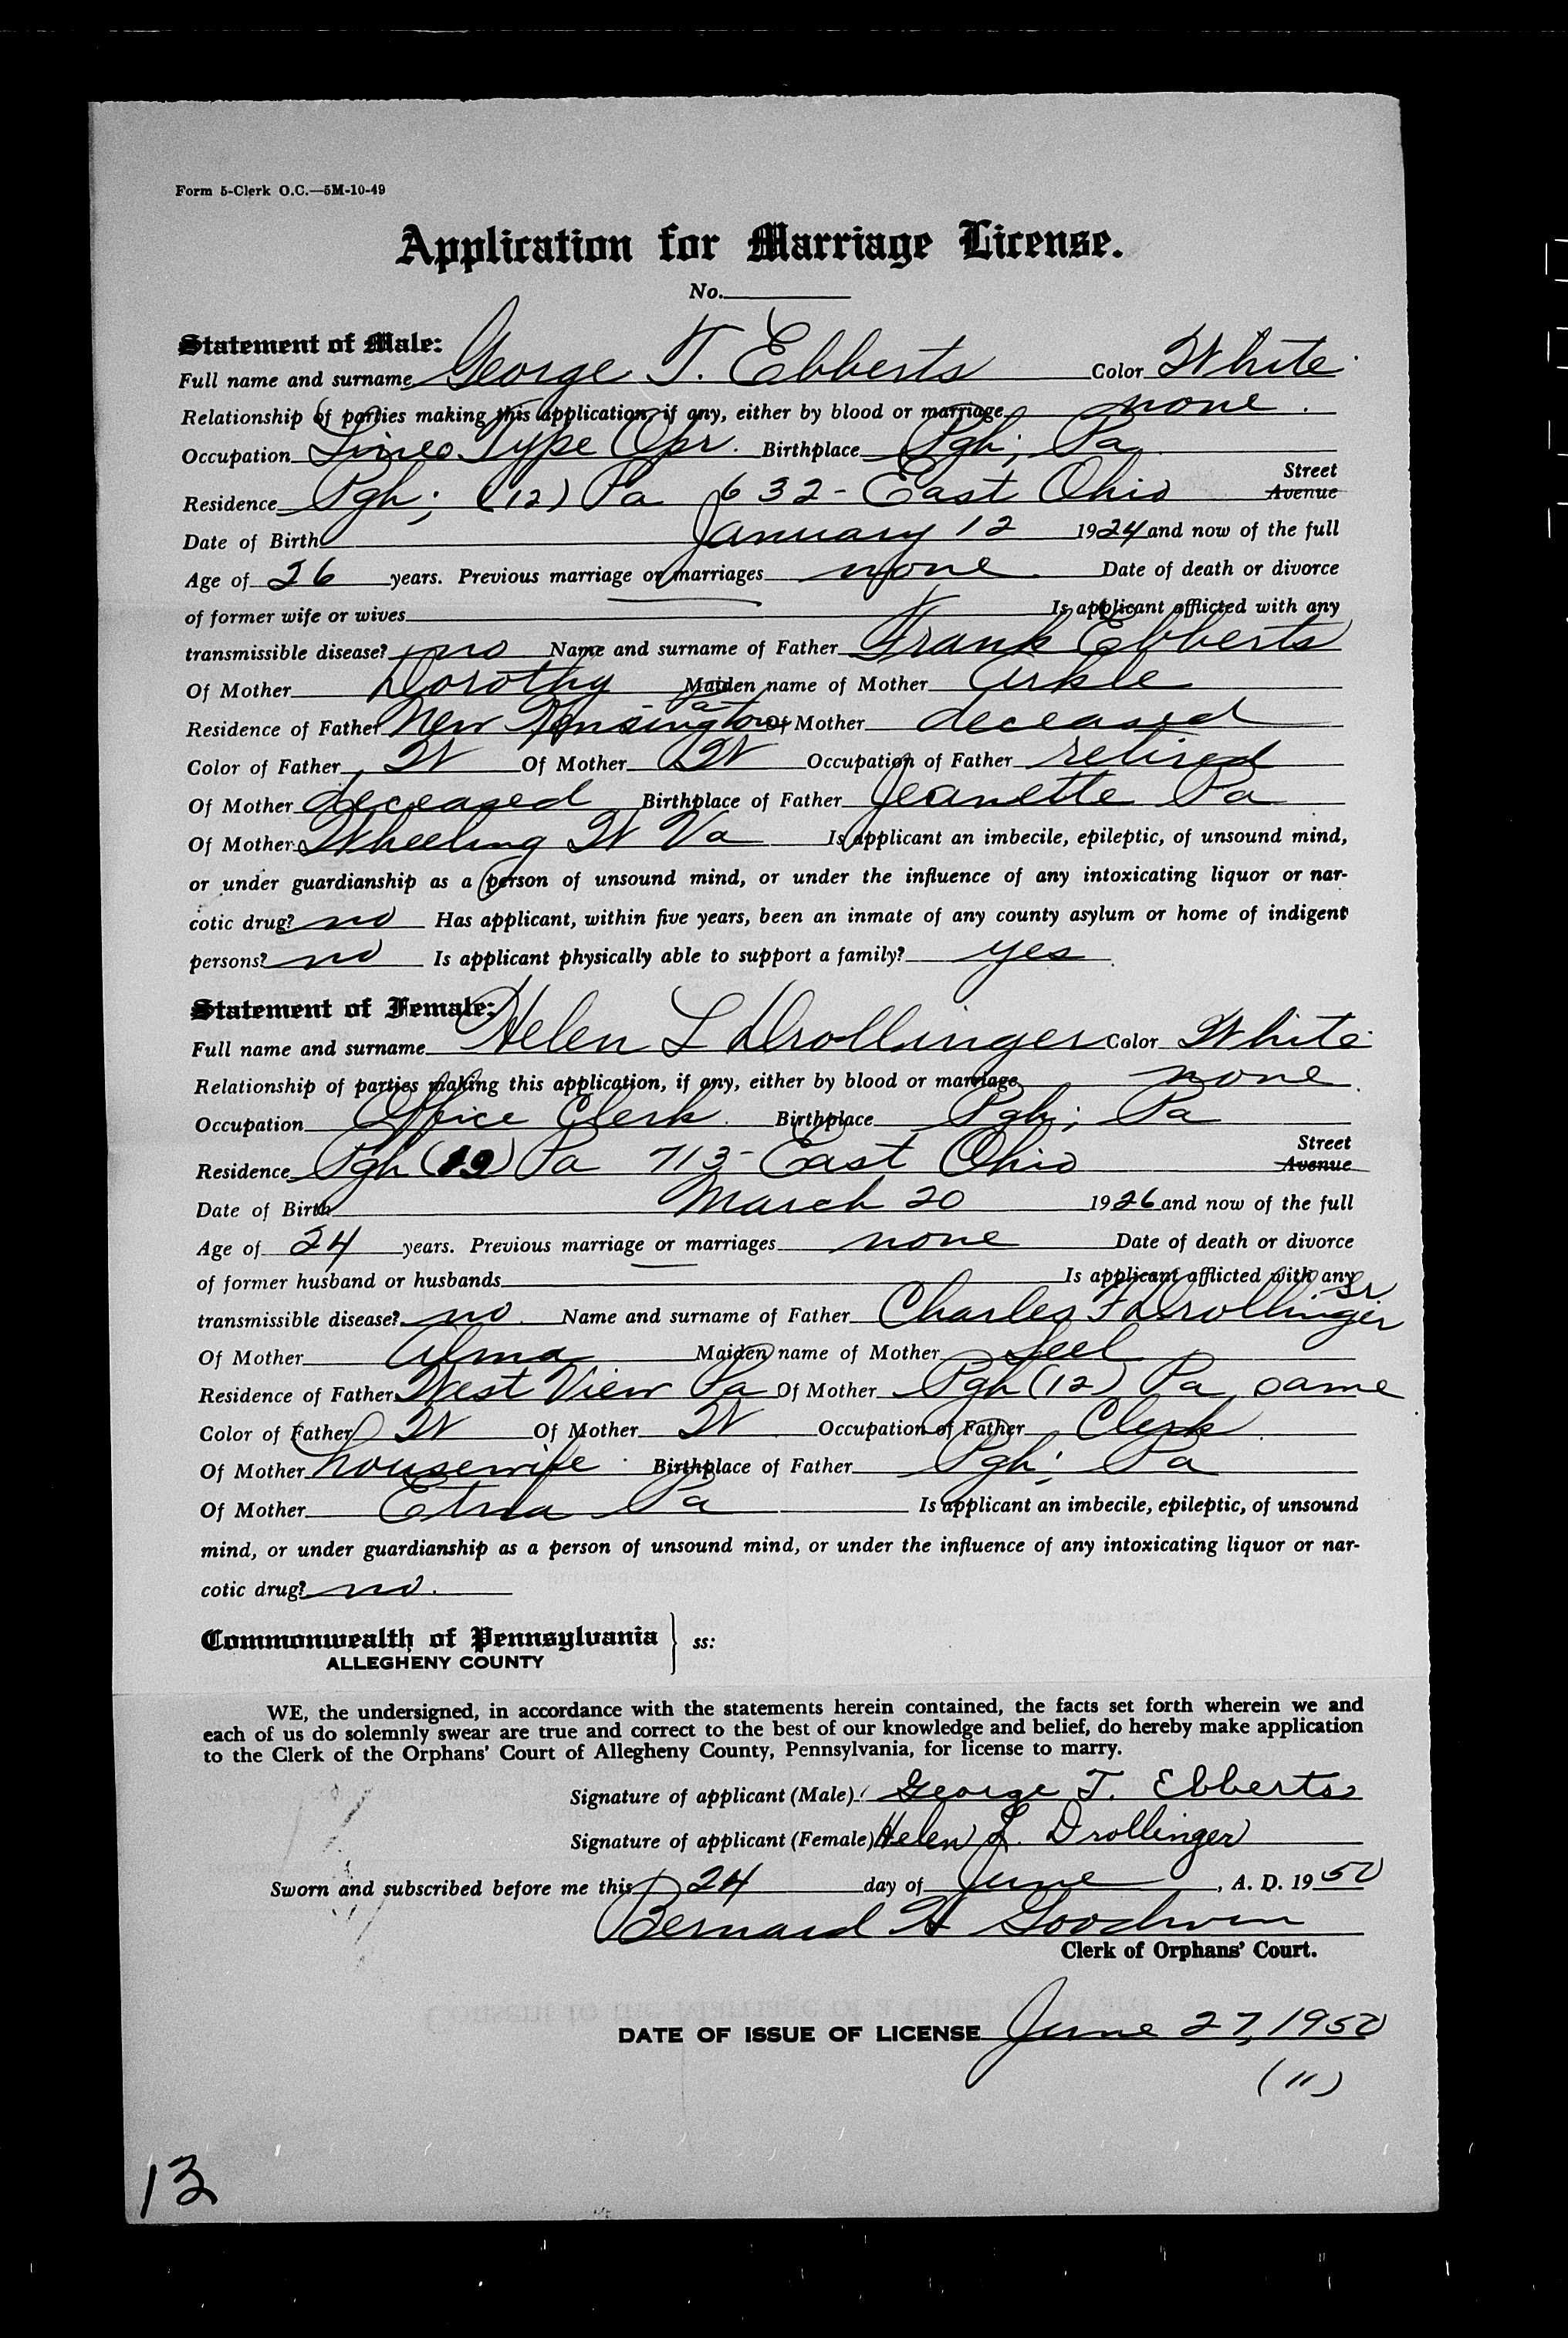 Form 5-Clerk O.C.—5M-10-49
Application for Marriage License.
No.
Statement of Male:
Full name and surname George T. Ebberts Color White
Relationship of parties making this application, if any, either by blood or marriage none.
Occupation Lineo Type Opr. Birthplace Pgh; Pa
Street
Residence Pgh; (12) Pa 632- East Ohio Avenue
Date of Birth January 12 1924 and now of the full
Age of 26 years. Previous marriage or marriages none. Date of death or divorce
of former wife or wives Is applicant afflicted with any
transmissible disease? no Name and surname of Father Frank Ebberts
Of Mother Dorothy Maiden name of Mother Arkle
Residence of Father New Kensington Pa Of Mother deceased
Color of Father W Of Mother W Occupation of Father retired
Of Mother deceased Birthplace of Father Jeanette Pa
Of Mother Wheeling W Va Is applicant an imbecile, epileptic, of unsound mind,
or under guardianship as a person of unsound mind, or under the influence of any intoxicating liquor or nar-
cotic drug? no Has applicant, within five years, been an inmate of any county asylum or home of indigent
persons? no Is applicant physically able to support a family? yes.
Statement of Female:
Full name and surname Helen L Drollinger Color White
Relationship of parties making this application, if any, either by blood or marriage none.
Occupation Office Clerk. Birthplace Pgh; Pa
Street
Residence Pgh (12) Pa 713- East Ohio Avenue
Date of Birth March 20 1926 and now of the full
Age of 24 years. Previous marriage or marriages none Date of death or divorce
of former husband or husbands Is applicant afflicted with any
transmissible disease? no. Name and surname of Father Charles F Drollinger Sr
Of Mother Alma Maiden name of Mother Seel
Residence of Father West View Pa Of Mother Pgh (12) Pa same
Color of Father W Of Mother W Occupation of Father Clerk.
Of Mother housewife. Birthplace of Father Pgh; Pa
Of Mother Etna Pa Is applicant an imbecile, epileptic, of unsound
mind, or under guardianship as a person of unsound mind, or under the influence of any intoxicating liquor or nar-
cotic drug? no.
Commonwealth of Pennsylvania } ss:
ALLEGHENY COUNTY
WE, the undersigned, in accordance with the statements herein contained, the facts set forth wherein we and
each of us do solemnly swear are true and correct to the best of our knowledge and belief, do hereby make application
to the Clerk of the Orphans' Court of Allegheny County, Pennsylvania, for license to marry.
Signature of applicant (Male) George T. Ebberts
Signature of applicant (Female) Helen L. Drollinger
Sworn and subscribed before me this 24 day of June, A. D. 1950
Bernard H Goodwin
Clerk of Orphans' Court.
DATE OF ISSUE OF LICENSE June 27, 1950
(11)
13